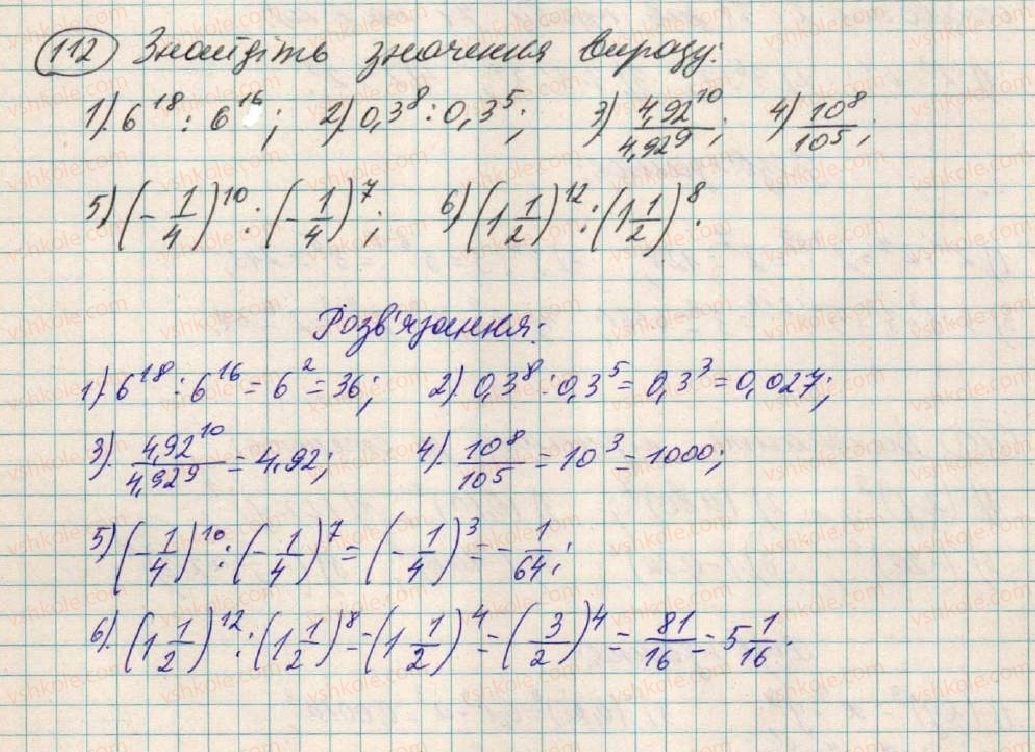 112 Знайдіть значення виразу:
1). 6^18 : 6^16; 2). 0,3^8 : 0,3^5; 3) 4,92^10/4,92^9; 4) 10^8/10^5;
5) (-1/4)^10 : (-1/4)^7; 6) (1 1/2)^12 : (1 1/2)^8.
Розв'язання:
1). 6^18 : 6^16 = 6^2 = 36; 2). 0,3^8 : 0,3^5 = 0,3^3 = 0,027;
3). 4,92^10/4,92^9 = 4,92; 4). 10^8/10^5 = 10^3 = 1000;
5) (-1/4)^10 : (-1/4)^7 = (-1/4)^3 = -1/64;
6). (1 1/2)^12 : (1 1/2)^8 = (1 1/2)^4 = (3/2)^4 = 81/16 = 5 1/16.
vshkole.com